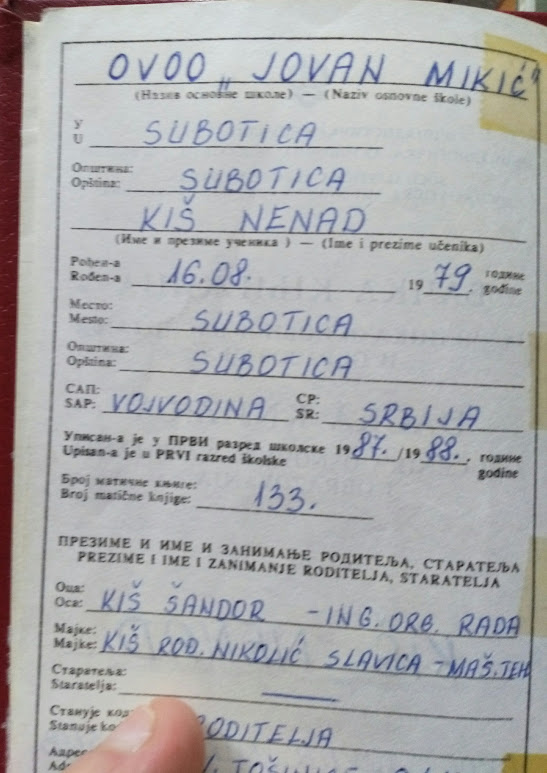 OVOO „JOVAN MIKIĆ"
(Назив основне школе) — (Naziv osnovne škole)
У
U SUBOTICA
Општина:
Opština: SUBOTICA
KIŠ NENAD
(Име и презиме ученика ) — (Ime i prezime učenika)
Рођен-а
Rođen-a 16.08. 1979. године
godine
Место:
Mesto: SUBOTICA
Општина:
Opština: SUBOTICA
САП: СР:
SAP: VOJVODINA SR: SRBIJA
Уписан-а је у ПРВИ разред школске 1987./1988. године
Upisan-a je u PRVI razred školske godine
Број матичне књиге:
Broj matične knjige: 133.
ПРЕЗИМЕ И ИМЕ И ЗАНИМАЊЕ РОДИТЕЉА, СТАРАТЕЉА
PREZIME I IME I ZANIMANJE RODITELJA, STARATELJA
Оца:
Oca: KIŠ ŠANDOR - ING. ORG. RADA
Мајке:
Majke: KIŠ ROĐ. NIKOLIĆ SLAVICA - MAŠ. TEH
Старатеља:
Staratelja:
Станује код
Stanuje RODITELJA